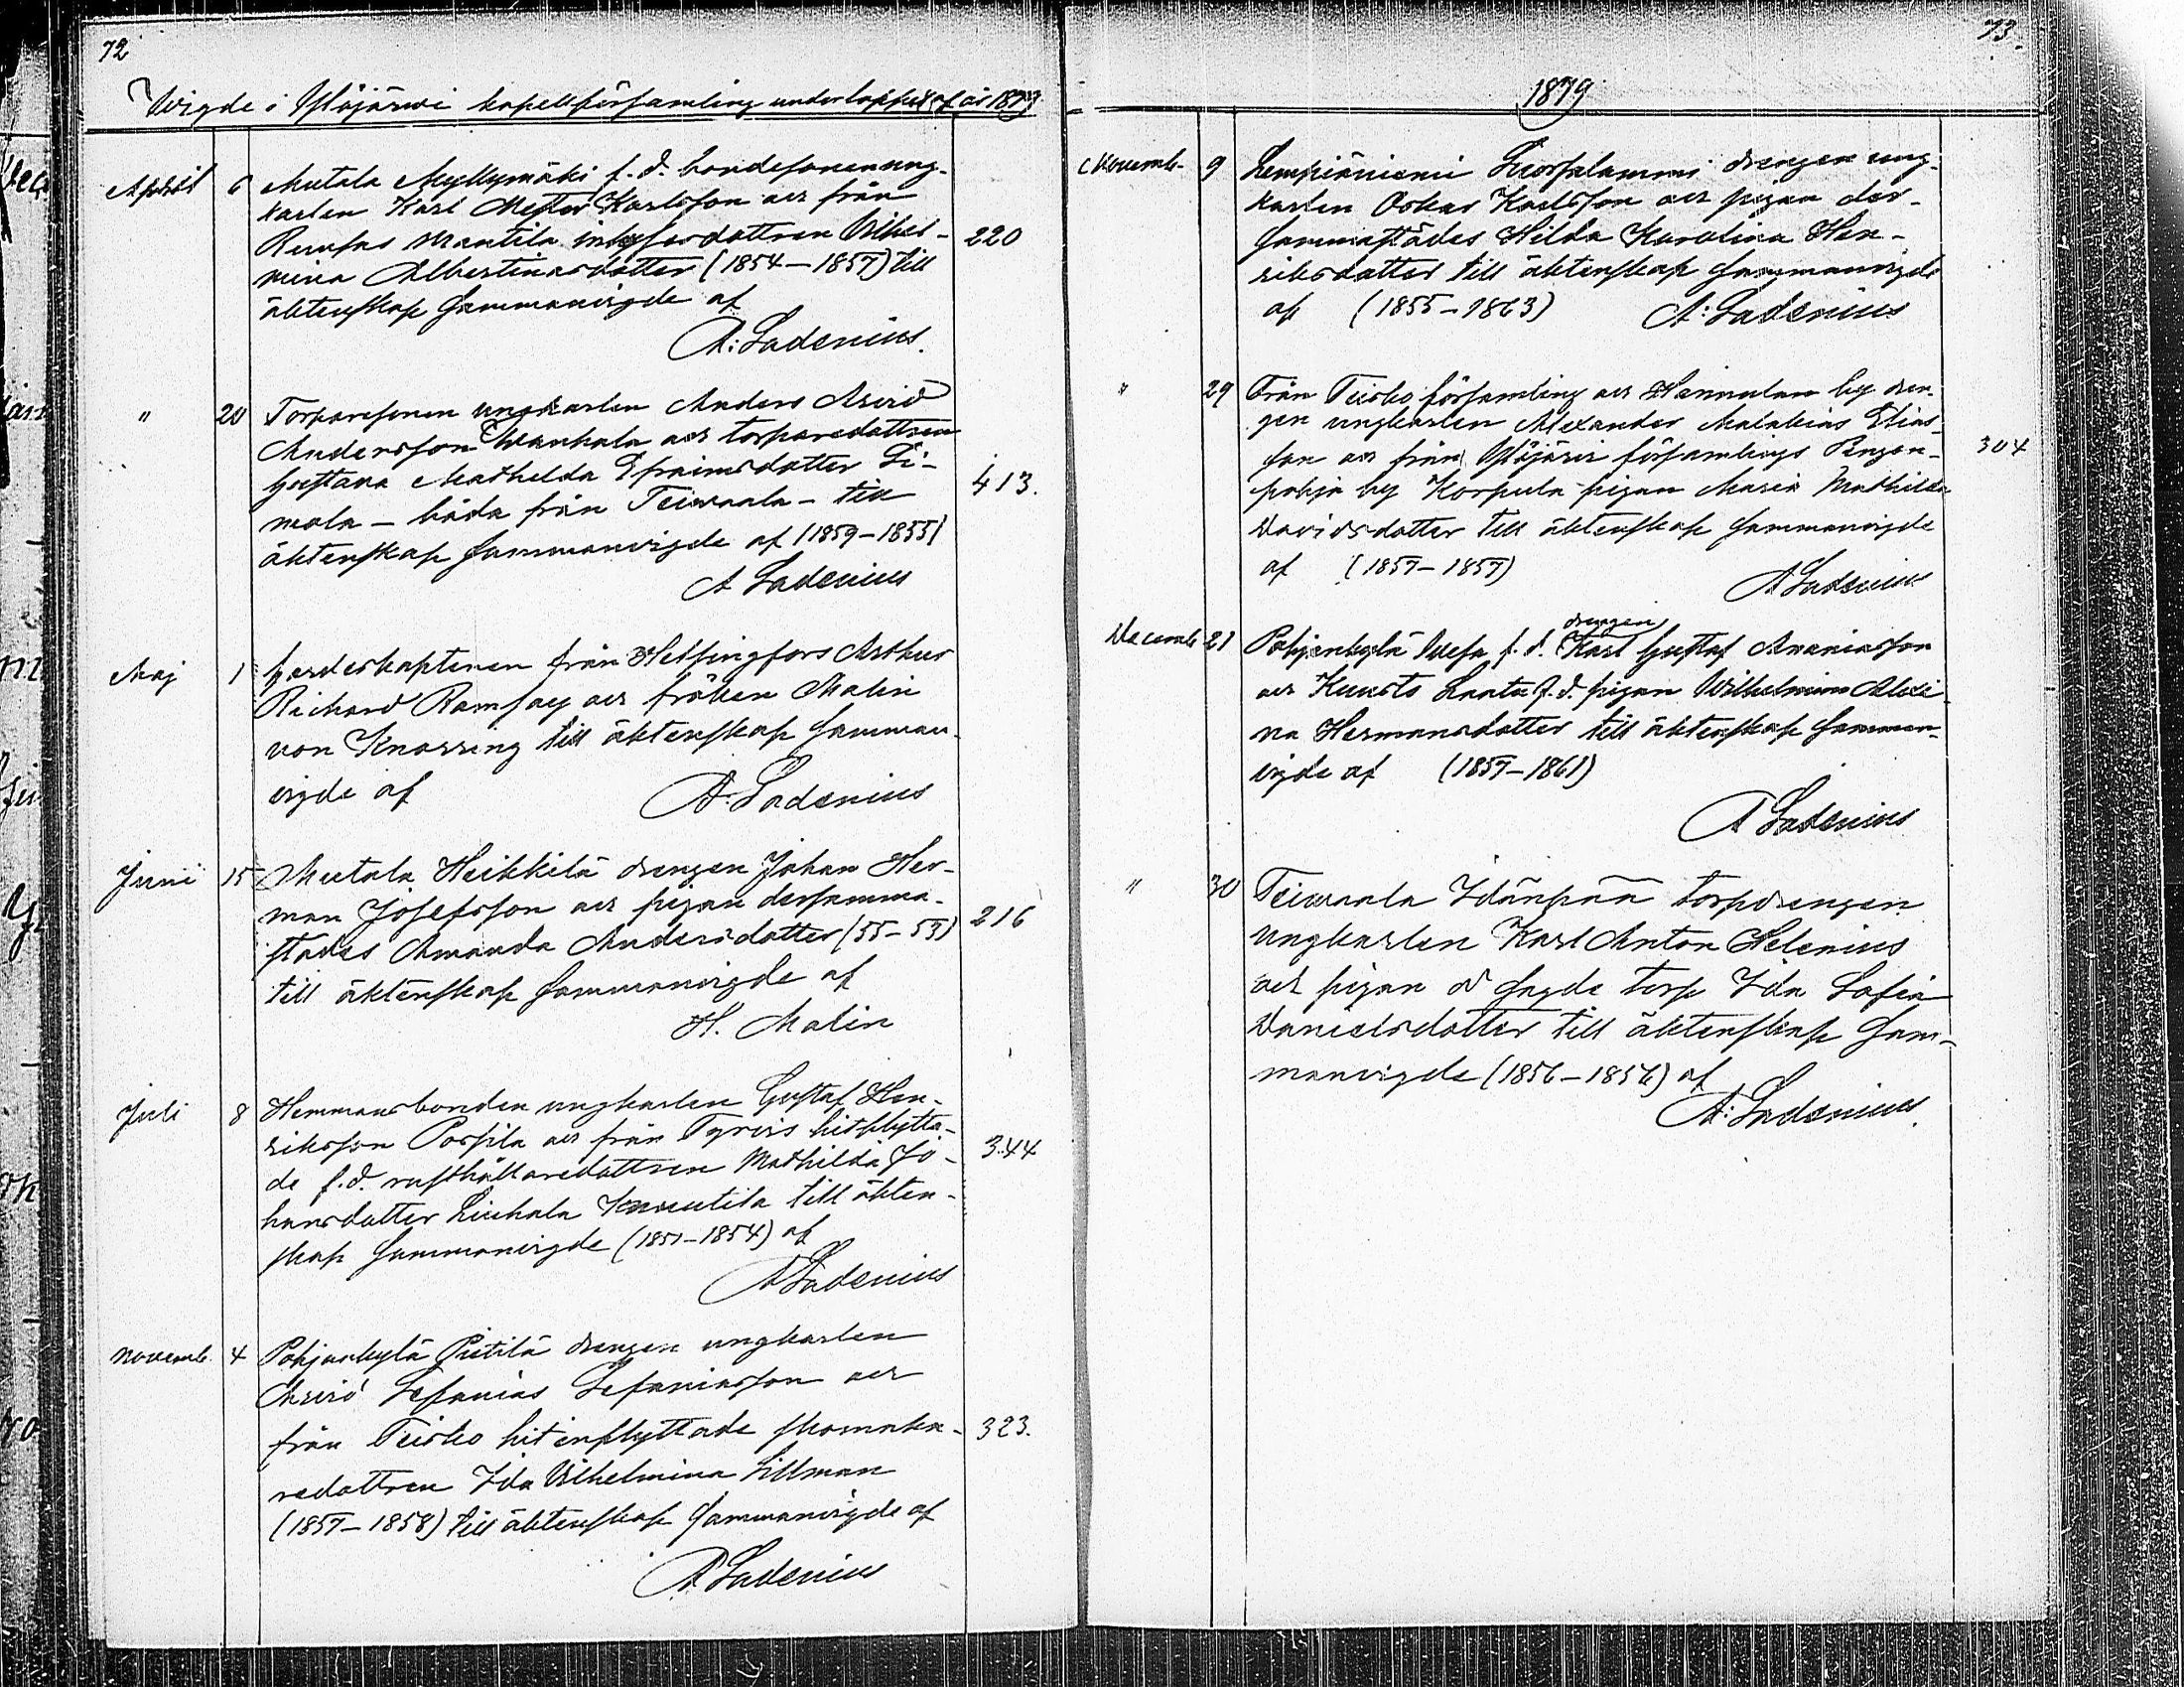 72
Wigde i Ylöjärwi kapellförsamling under loppet af år 1879
April 6 Mutala Myllymäki f. d. bondesonen ung-
karlen Karl Karlsson och från
Mantila inhysesdottren Wilhel- 220
mina Albertinasdotter (1854–1857) till
äktenskap sammanvigde af
A: Ladenius.
" 20 Torparesonen ungkarlen Anders Arvid
Andersson Wanhala och torparedottren
Gustava Mathilda Efraimsdotter Si- 413.
mola – båda från Teiwaala – till
äktenskap sammanvigde af (1859–1855)
A Ladenius
Maj 1 Gardeskaptenen från Helsingfors Arthur
Richard Ramsay och fröken Malin
von Knorring till äktenskap samman-
vigde af A. Ladenius
Juni 15 Mutala Heikkilä drengen Johan Her-
man Josefsson och pigan dersamma- 216
städes Amanda Andersdotter (55–53)
till äktenskap sammanvigde af
H. Malin
Juli 8 Hemmansbonden ungkarlen Gustaf Hen-
riksson Porpila och från Tyrvis hitflytta-
de f.d. rusthållaredottren Mathilda Jo- 344
hansdotter Liuhala till äkten-
skap sammanvigde (1851–1854) af
A Ladenius
Novemb. 4 Pohjankylä Pietilä drengen ungkarlen
Arvid Sefanias Sefaniasson och
från Teisko hit inflyttade skomaka- 323.
redottren Ida Wilhelmina Lillman
(1857–1858) till äktenskap sammanvigde af
A Ladenius
73.
1879
Novemb. 9 Lempiäniemi drengen ung-
karlen Oskar Karlsson och pigan der-
sammastädes Hilda Karolina Hen-
riksdotter till äktenskap sammanvigde
af (1855–1863) A: Ladenius
" 29 Från Teisko församling och Hannulan by dren-
gen ungkarlen Alexander Malakias Elias-
son och från Ylöjärvi församlings Pengon- 304
pohja by Korpula pigan Maria Mathilda
Davidsdotter till äktenskap sammanvigde
af (1857–1857)
A Ladenius
drengen
Decemb. 21 Pohjankylä Uusa f. d. Karl Gustaf Ananiasson
och Kuusto Laatu f.d. pigan Wilhelmina Alexi-
na Hermansdotter till äktenskap samman-
vigde af (1857–1861)
A Ladenius
" 30 Teiwaala Ydänpää torpdrengen
ungkarlen Karl Anton Helenius
och pigan å sagde torp Ida Sofia
Danielsdotter till äktenskap sam-
manvigde (1856–1856) af
A: Ladenius.